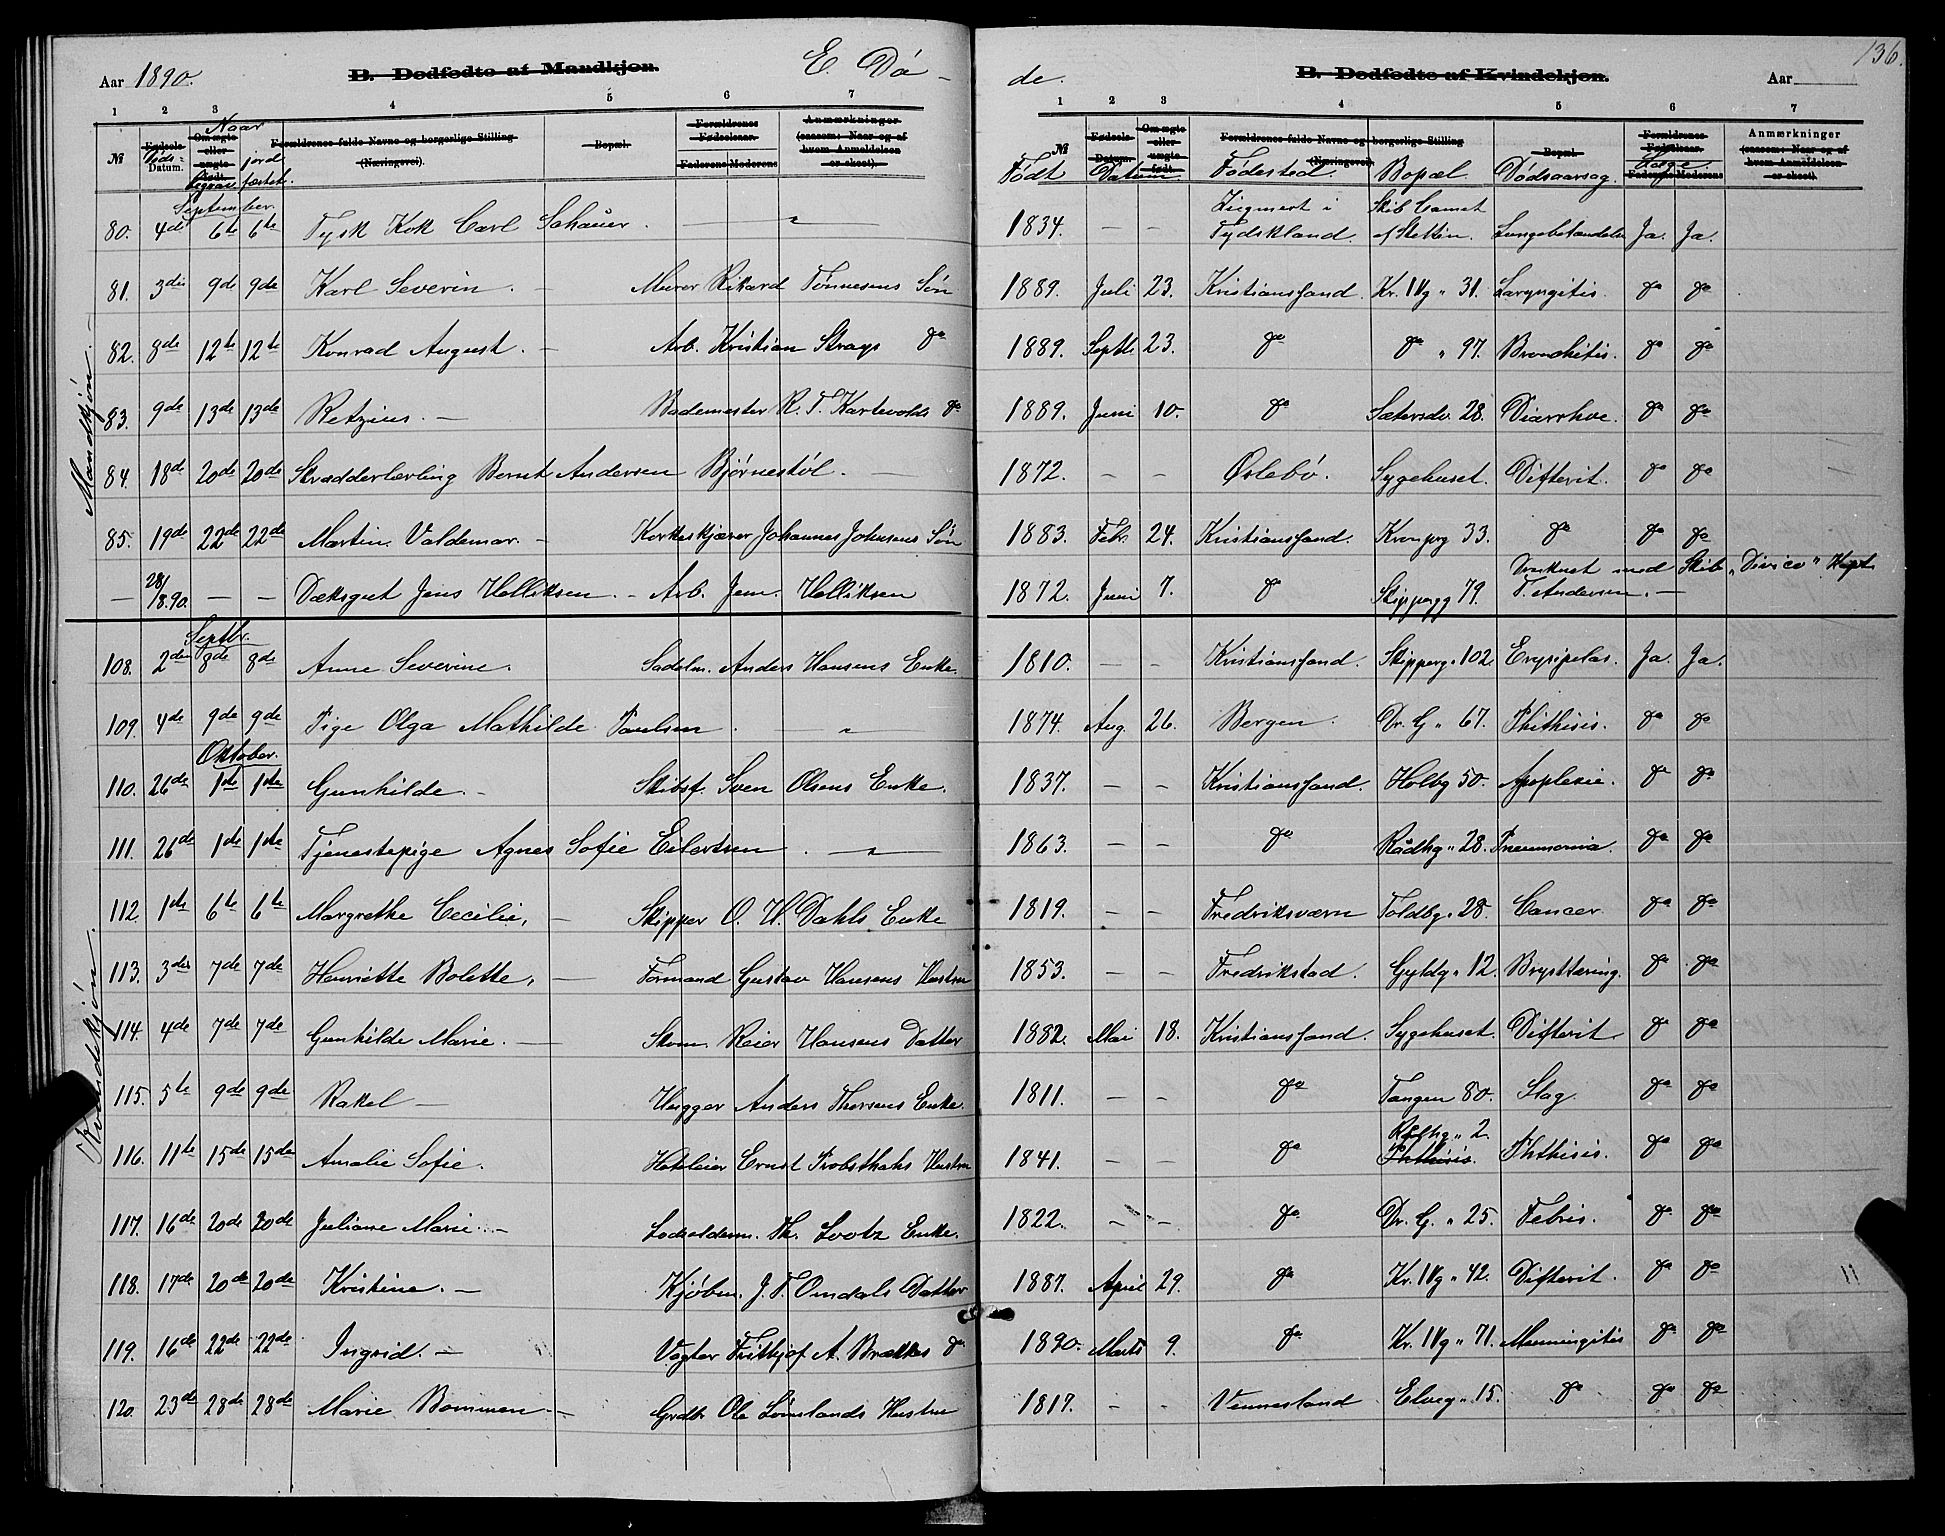 Aar 1890. B. Dødfødte af Mandkjøn. E. Dö-
1 2 3 4 5 6 7
№ Fødsels Datum. Döds- Om ægte eller uægte født. Naar Begrav. jord fæstet. Forældrenes fulde Navne og borgerlige Stilling (Næringsvei). Bopæl. Forældrenes Fødselsaar. Faderens Moderens Anmærkninger (saasom: Naar og af hvem Anmeldelsen er skeet).
Mandkjön.
September.
80. 4de 6te 6te Tysk Kok Carl Schauer. — " —
81. 3die 9de 9de Karl Severin. — Murer Rikard Tönnesens Sön
82. 8de 12te 12te Konrad August. — Arb. Kristian Strays do
83. 9de 13de 13de Retzius. — Bademester R. T. Kartevolds do
84. 18de 20de 20de Skrædderlærling Bernt Andersen Bjørnestøl. —
85. 19de 22de 22de Martin Valdemar. — Korkeskjærer Johannes Johnsens Sön
— 28/8.90. — — Dæksgut Jens Helliksen. — Arb. Jem. Helliksen
Kvindekjön.
Septbr.
108. 2den 8de 8de Anne Severine. Sadelm. Anders Hansens Enke.
109. 4de 9de 9de Pige Olga Mathilde Paulsen. "
Oktober.
110. 26de 1ste 1ste Gunhilde. — Skibsf. Sven Olsens Enke.
111. 26de 1ste 1ste Tjenestepige Agnes Sofie Eilertsen. — " —
112. 1ste 6te 6te Margrethe Cecilie, — Skipper O. H. Dahls Enke
113. 3die 7de 7de Henriette Bolette, — Formand Gustav Hansens Hustru
114. 4de 7de 7de Gunhilde Marie. — Skom. Reier Hansens Datter
115. 5te 9de 9de Rakel — Anders Enke.
116. 11te 15de 15de Amalie Sofie. Ernst Hustru
117. 16de 20de 20de Juliane Marie. — Lodsolderm. Th. Lootz Enke.
118. 17de 20de 20de Kristine. — Kjøbm. J. T. Omdals Datter
119. 16de 22de 22de Ingrid. — Vægter Frithjof A. Brækkes do
120. 23de 28de 28de Marie Bommen — Grdbr. Ole Lömslands Hustru
de. B. Dødfødte af Kvindekjøn. Aar 136.
1 2 3 4 5 6 7
№ Fødsels Datum. Om ægte eller uægte født. Forældrenes fulde Navne og borgerlige Stilling (Næringsvei) Bopæl. Forældrenes Fødselsaar. Faderens Moderens Anmærkninger (saasom: Naar og af hvem Anmeldelsen er skeet).
Födt Datum Födested. Bopæl. Dødsaarsag. Læge
1834. — — i Tydskland. Skib Comet af Stettin. Lungebetændelse Ja. Ja.
1889. Juli 23. Kristianssand. Kr. IVg " 31. Laryngitis. do do
1889. Septb. 23. do do " 97. Bronchitis. do do
1889. Juni 10. do Sætersdv. 28. Diarrhoe. do do
1872. — — Øslebö. Sygehuset. Difterit. do do
1883. Febr. 24. Kristianssand. Kronprg 33. do do do
1872. Juni 7. do Skipperg 79. Druknet med Skib "Divico" Kapt. T. Andersen. —
1810. — — Kristianssand. Skipperg " 102 Erysipelas. Ja. Ja.
1874. Aug. 26. Bergen. Dr. G " 67. Phthisis. do do
1837. — — Kristianssand. Holbg 50. Apoplexie. do do
1863. — — do Rådhg " 28. Pneumonia. do do
1819. — — Fredriksværn Toldbg " 28. Cancer. do do
1853. — — Fredrikstad. Gyldg " 12. Brysttæring. do do
1882. Mai 18. Kristianssand. Sygehuset. Difterit do do
1811. — — do Tangen 80. Slag. do do
1841. — — do Rådhg " 2. Phthisis. Phthisis. do do
1822. — — do Dr. G. " 25. Febris. do do
1887. April 29. do Kr. IVg " 42. Difterit. do do
1890. Marts 9. do Kr. IVg " 71. Menningitis do do
1817. — — Vennesland Elveg " 15. do do do